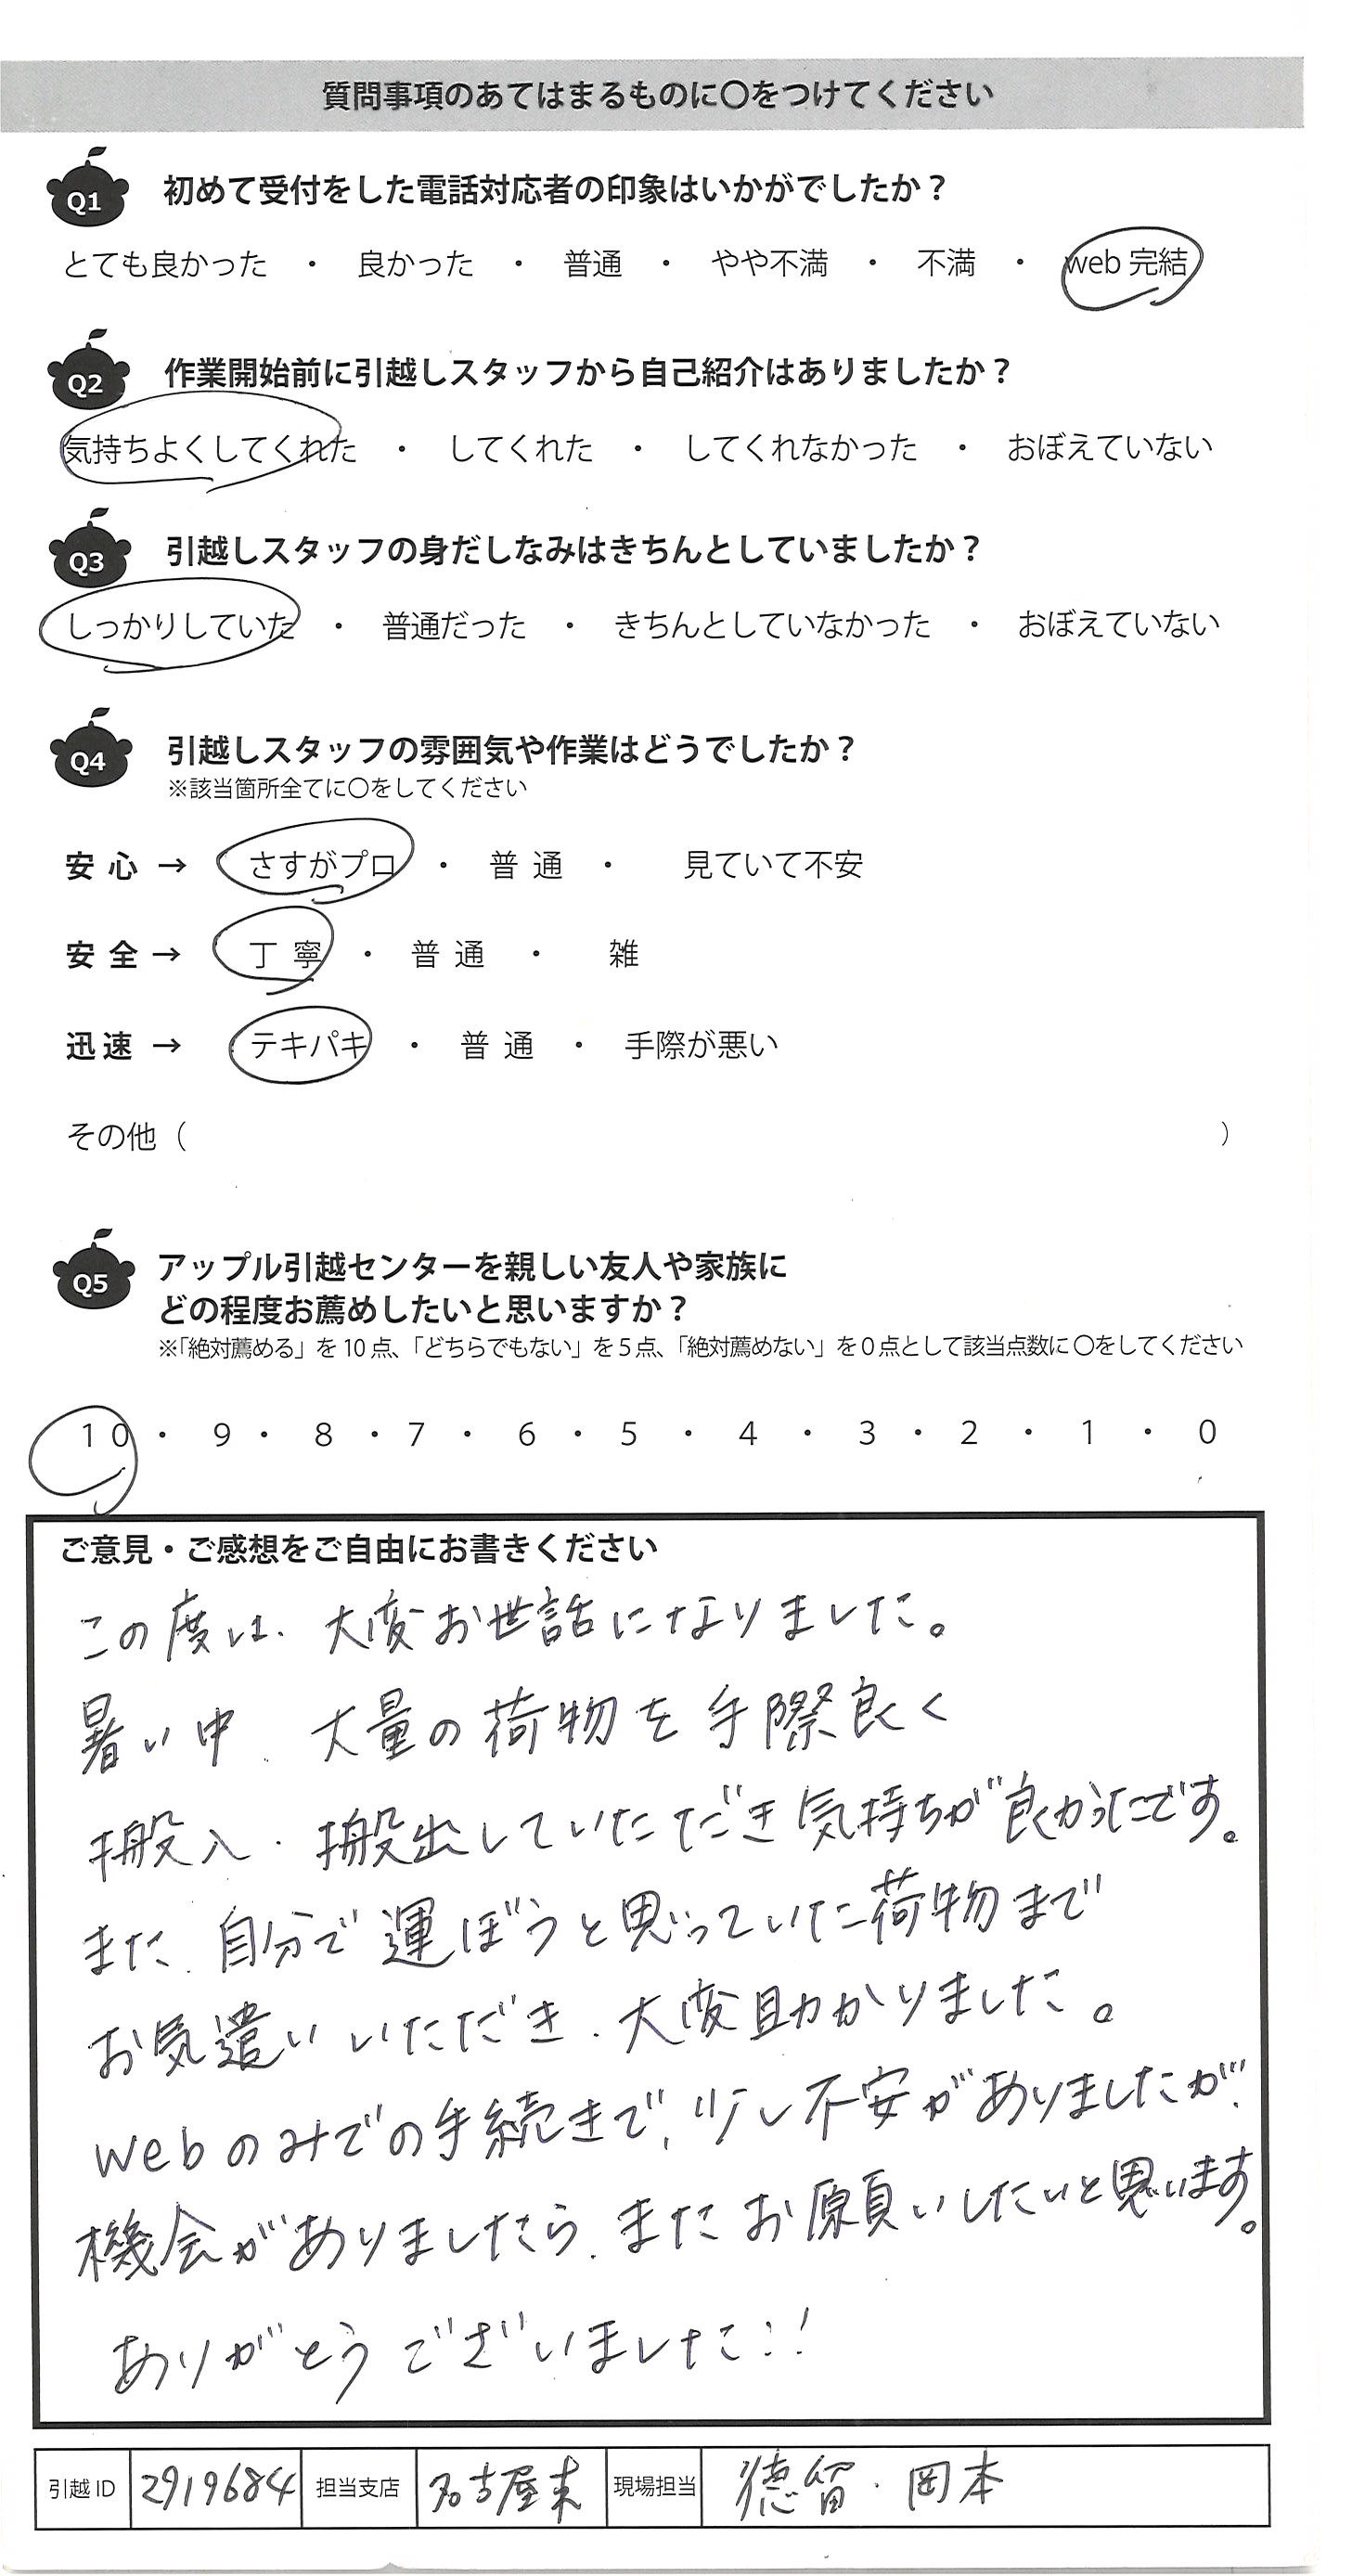 質問事項のあてはまるものに〇をつけてください
Q1 初めて受付をした電話対応者の印象はいかがでしたか？
とても良かった ・ 良かった ・ 普通 ・ やや不満 ・ 不満 ・ web 完結
Q2 作業開始前に引越しスタッフから自己紹介はありましたか？
気持ちよくしてくれた ・ してくれた ・ してくれなかった ・ おぼえていない
Q3 引越しスタッフの身だしなみはきちんとしていましたか？
しっかりしていた ・ 普通だった ・ きちんとしていなかった ・ おぼえていない
Q4 引越しスタッフの雰囲気や作業はどうでしたか？
※該当箇所全てに〇をしてください
安心 → さすがプロ ・ 普通 ・ 見ていて不安
安全 → 丁寧 ・ 普通 ・ 雑
迅速 → テキパキ ・ 普通 ・ 手際が悪い
その他（ ）
Q5 アップル引越センターを親しい友人や家族に
どの程度お薦めしたいと思いますか？
※「絶対薦める」を 10 点、「どちらでもない」を 5 点、「絶対薦めない」を 0 点として該当点数に〇をしてください
10 ・ 9 ・ 8 ・ 7 ・ 6 ・ 5 ・ 4 ・ 3 ・ 2 ・ 1 ・ 0
ご意見・ご感想をご自由にお書きください
この度は、大変お世話になりました。
暑い中、大量の荷物を手際良く
搬入・搬出していただき気持ちが良かったです。
また、自分で運ぼうと思っていた荷物まで
お気遣いいただき、大変助かりました。
webのみでの手続きで、少し不安がありましたが、
機会がありましたら、またお願いしたいと思います。
ありがとうございました!!
引越 ID 2919684 担当支店 名古屋東 現場担当 徳留・岡本